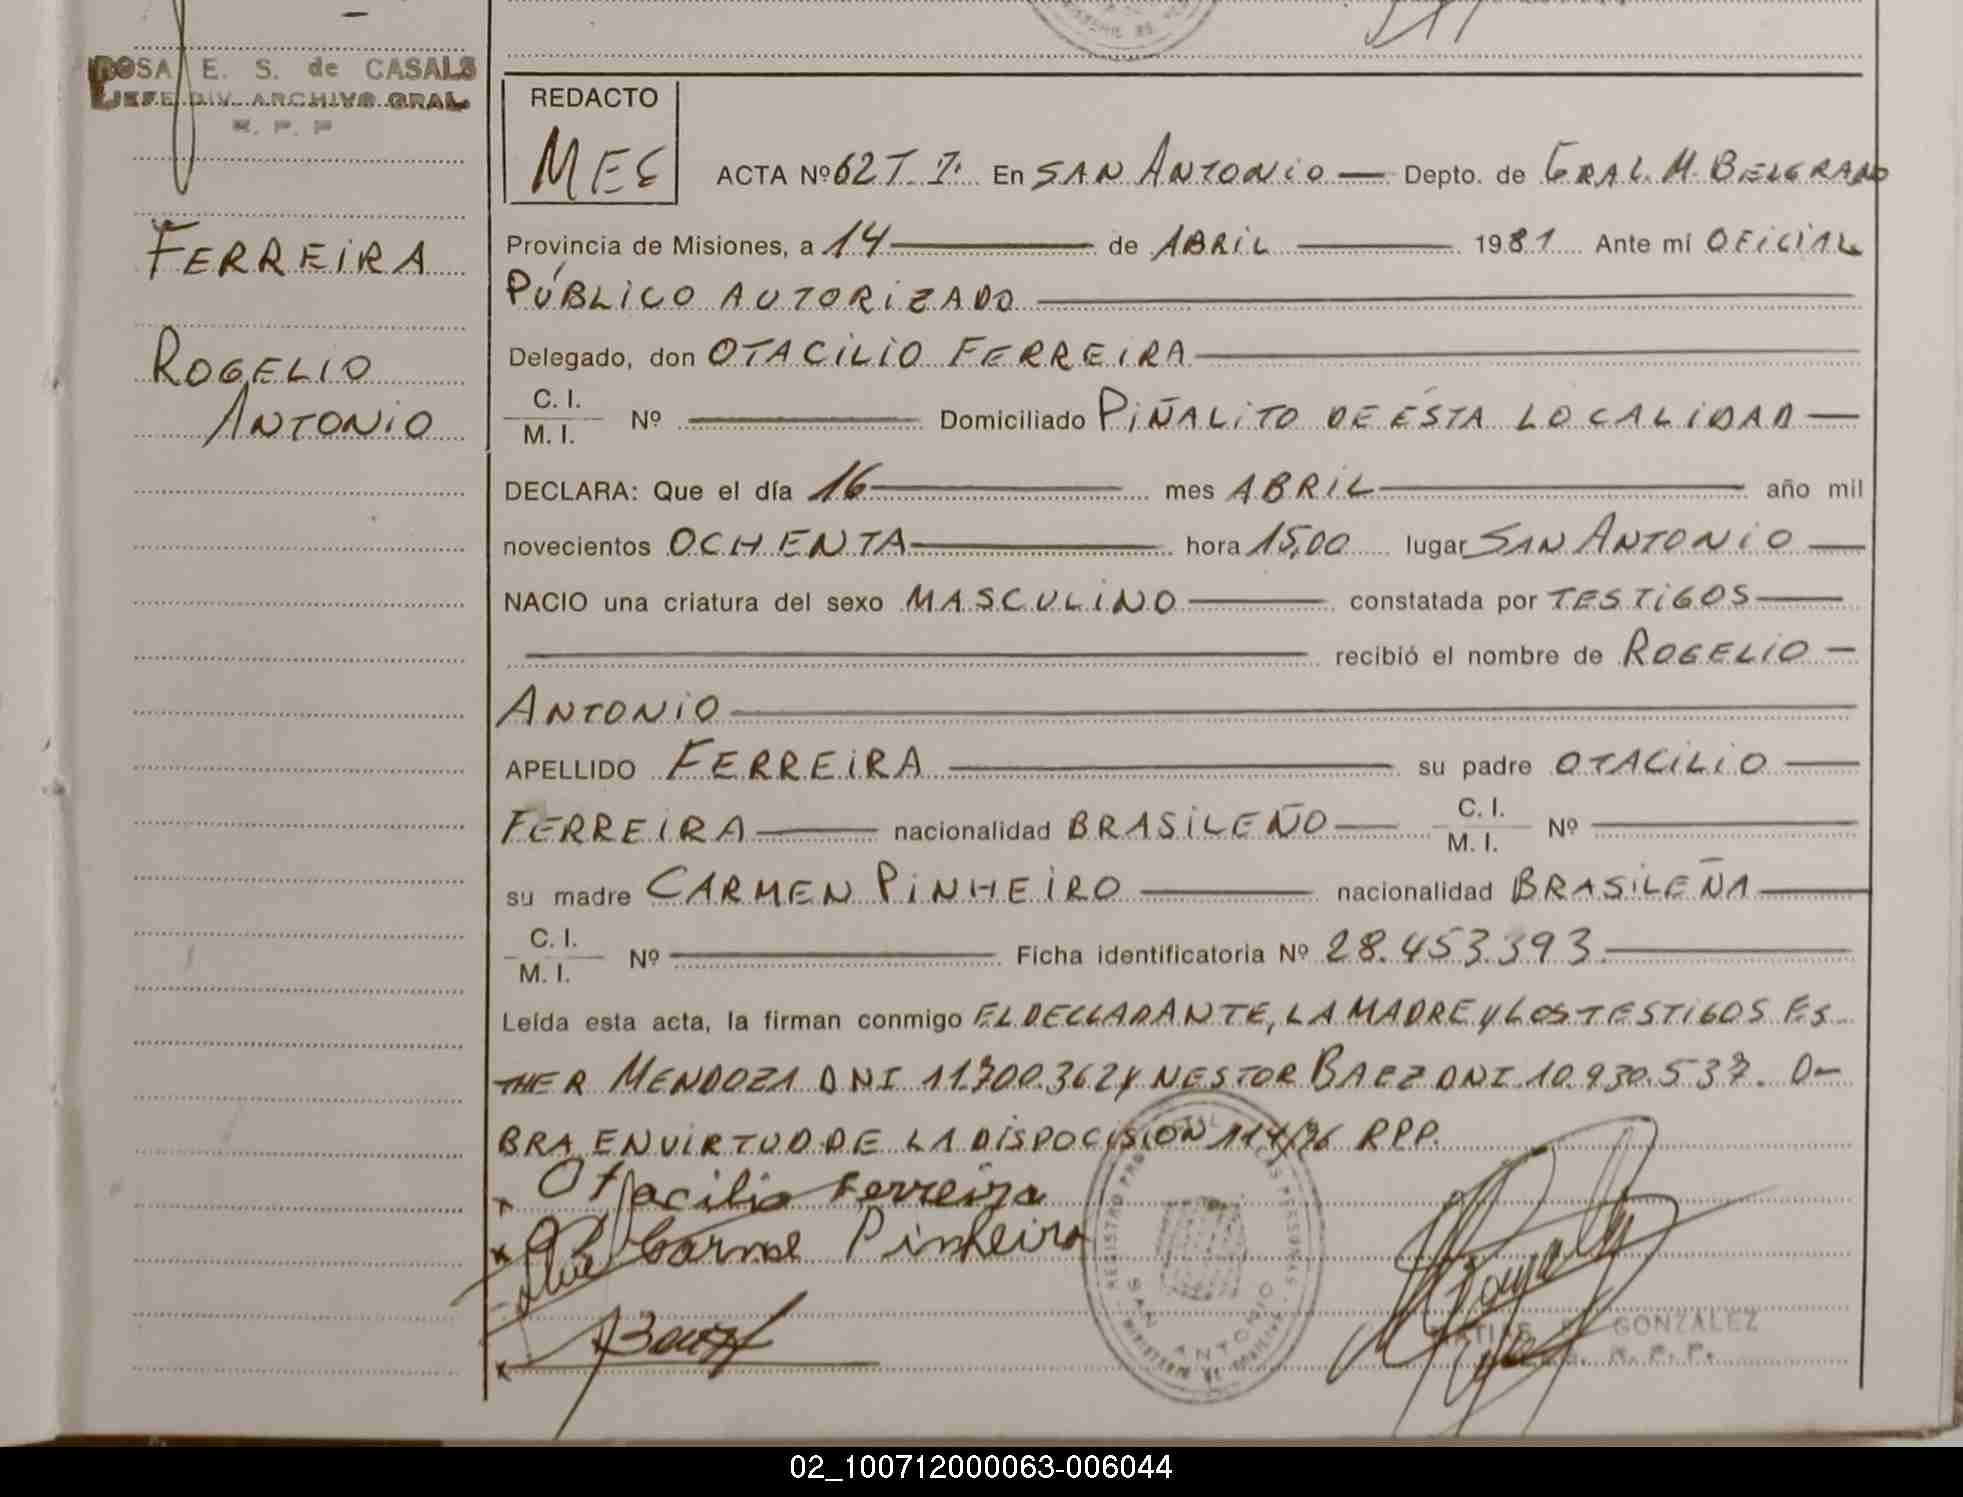 ROSA E. S. de CASALS
JEFE DIV. ARCHIVO GRAL.
R. P. P
FERREIRA
ROGELIO
ANTONIO
REDACTO
MES
ACTA Nº 62 T. I. En SAN ANTONIO — Depto. de GRAL. M. BELGRANO
Provincia de Misiones, a 14 de ABRIL 1981 Ante mí OFICIAL
PÚBLICO AUTORIZADO
Delegado, don OTACILIO FERREIRA
C. I.
M. I. Nº Domiciliado PIÑALITO DE ÉSTA LOCALIDAD —
DECLARA: Que el día 16 mes ABRIL año mil
novecientos OCHENTA hora 15,00 lugar SAN ANTONIO —
NACIO una criatura del sexo MASCULINO constatada por TESTIGOS
recibió el nombre de ROGELIO —
ANTONIO
APELLIDO FERREIRA su padre OTACILIO
FERREIRA nacionalidad BRASILEÑO C. I.
M. I. Nº
su madre CARMEN PINHEIRO nacionalidad BRASILEÑA
C. I.
M. I. Nº Ficha identificatoria Nº 28.453.393.
Leída esta acta, la firman conmigo EL DECLARANTE, LA MADRE Y LOS TESTIGOS ES
THER MENDOZA DNI 11.700.362 Y NESTOR BAEZ DNI 10.930.537. O—
BRA EN VIRTUD DE LA DISPOCISION 114/76 RPP.
x Otacilio Ferreira
x Carme Pinheiro
x Baez
REGISTRO PERSONAS
SAN ANTONIO
GONZALEZ
R. P. P.
02_100712000063-006044